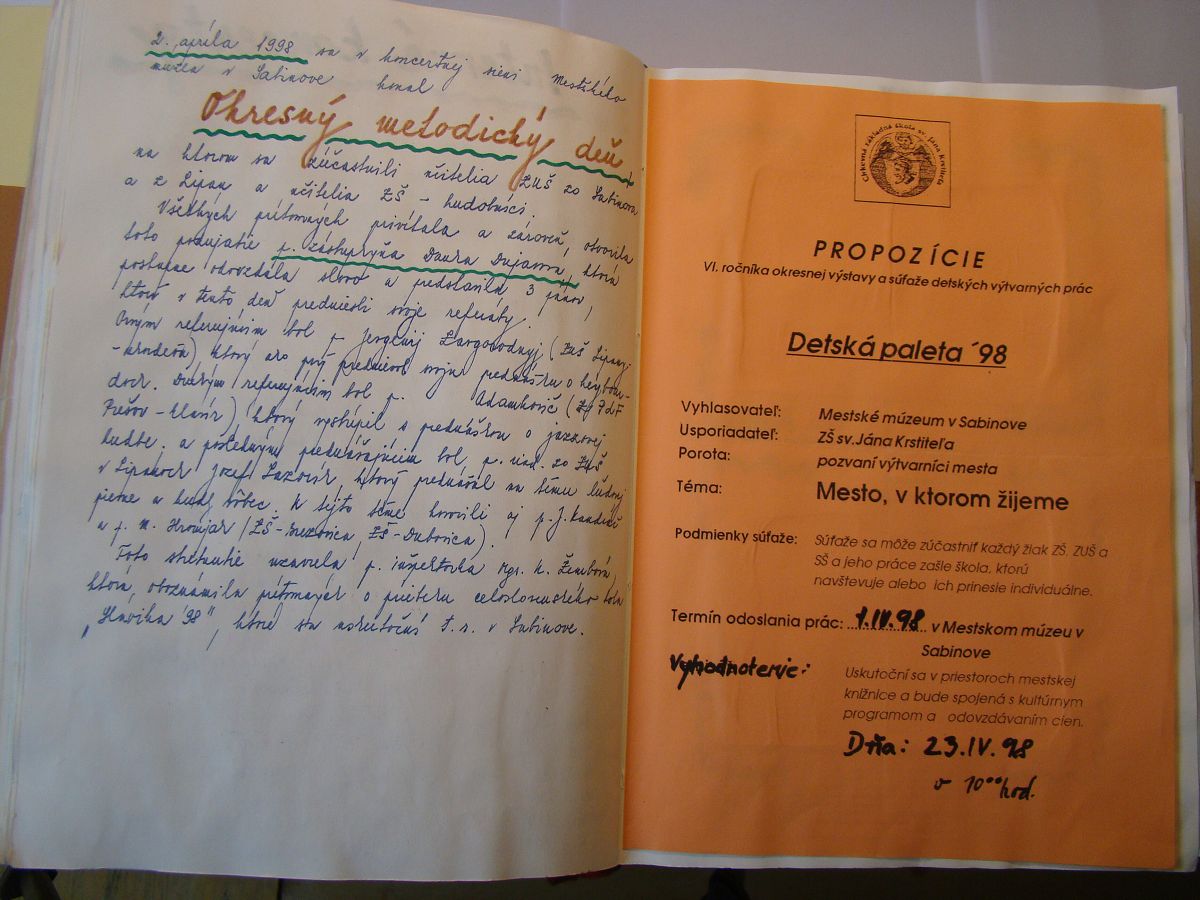 2. apríla 1998 sa v koncertnej sieni Mestského
múzea v Sabinove konal
Okresný metodický deň,
na ktorom sa zúčastnili učitelia ZUŠ zo Sabinova
a z Lipan a učitelia ZŠ - hudobníci.
Všetkých prítomných privítala a zároveň otvorila
toto podujatie p. zástupkyňa Danka Dujavová, ktorá
postupne odovzdala slovo a predstavila 3 pánov,
ktorý v tento deň predniesli svoje referáty.
Prvým referujúcim bol p. (ZUŠ Lipany-
), ktorý ako prvý predniesol svoju prednášku o
. Druhým referujúcim bol p. Adamkovič (PdF
Prešov - klavír) ktorý vystúpil s prednáškou o jazzovej
hudbe. a posledným prednášajúcim bol p. riad. zo ZUŠ
v Lipanoch Jozef , ktorý prednášal na tému ľudovej
piesne a hudby vôbec. K tejto téme hovorili aj p. J. Kandráč
a p. M. Hromjár (ZŠ - , ZŠ - Dubovica).
Toto stretnutie uzavrela p. inšpektorka Mgr. K. Žembová,
ktorá oboznámila prítomných o priebehu celoslovenského kola
„Slávika '98", ktoré sa uskutoční t. r. v Sabinove.
Cirkevná základná škola sv. Jána Krstiteľa
PROPOZÍCIE
VI. ročníka okresnej výstavy a súťaže detských výtvarných prác
Detská paleta ´98
Vyhlasovateľ: Mestské múzeum v Sabinove
Usporiadateľ: ZŠ sv.Jána Krstiteľa
Porota: pozvaní výtvarníci mesta
Téma: Mesto, v ktorom žijeme
Podmienky súťaže: Súťaže sa môže zúčastniť každý žiak ZŠ. ZUŠ a
SŠ a jeho práce zašle škola, ktorú
navštevuje alebo ich prinesie individuálne.
Termín odoslania prác: 1.IV.98 v Mestskom múzeu v
Sabinove
Vyhodnotenie:
Uskutoční sa v priestoroch mestskej
knižnice a bude spojená s kultúrnym
programom a odovzdávaním cien.
Dňa: 23.IV.98
o 10°° hod.